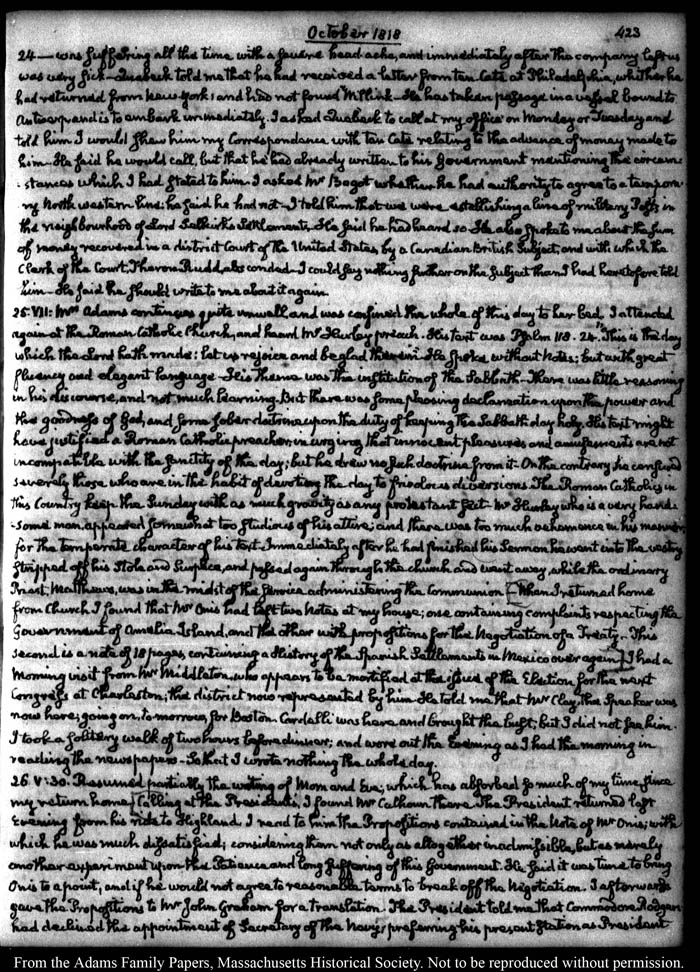 October 1818
423
24 — was suffering all the time with a severe head ache, and immediately after the company left us
was very sick — Quabeck told me that he had received a letter from ten Cate at Philadelphia, whither he
had returned from New York; and had not found Mr. He has taken passage in a vessel bound to
Antwerp and is to embark immediately. I asked Quabeck to call at my office on Monday or Tuesday and
told him I would shew him my Correspondence with ten Cate relating to the advance of money made to
him — He said he would call, but that he had already written to his Government mentioning the circum-
-stances which I had stated to him. I asked Mr Bagot whether he had authority to agree to a tempora-
ry North western line: he said he had not — I told him that we were establishing a line of military Posts in
the neighbourhood of Lord Selkirk's settlements. He said he had heard so. He also spoke to me about the sum
of money recovered in a district Court of the United States by a Canadian British Subject, and with which the
Clerk of the Court, Theron Rudd, absconded — I could say nothing further on the subject than I had heretofore told
him — He said he should write to me about it again
25. VII: Mrs Adams continues quite unwell and was confined the whole of this day to her bed. I attended
again at the Roman Catholic Church, and heard Mr Hurley preach. His text was Psalm 118. 24. "This is the day
which the Lord hath made: let us rejoice and be glad therein" He spoke without Notes; but with great
fluency and elegant language — His theme was the institution of the Sabbath — There was little reasoning
in his discourse, and not much learning. But there was some pleasing declamation upon the power and
the goodness of God, and some sober doctrine upon the duty of keeping the Sabbath day holy. His text might
have justified a Roman Catholic preacher, in urging that innocent pleasures and amusements are not
incompatible with the sanctity of the day; but he drew no such doctrine from it — On the contrary he censured
severely those who are in the habit of devoting the day to frivolous diversions. The Roman Catholics in
this Country keep the Sunday with as much gravity as any protestant sect — Mr Hurley who is a very hand-
-some man, appeared somewhat too studious of his attire; and there was too much vehemence in his manner
for the temperate character of his text. Immediately after he had finished his Sermon he went into the vestry
stripped off his Stole and Surplice, and passed again through the church and went away, while the ordinary
Priest, Matthews, was in the midst of the service administering the Communion — [When I returned home
from Church I found that Mr Onis had left two Notes at my house; one containing complaints respecting the
Government of Amelia Island, and the other with propositions for the Negotiation of a Treaty — This
second is a note of 18 pages, containing a History of the Spanish Settlements in Mexico over again] I had a
Morning visit from Mr Middleton, who appears to be mortified at the issue of the Election for the next
Congress at Charleston; the district now represented by him. He told me that Mr Clay, the Speaker was
now here; going on, tomorrow, for Boston. Cardelli was here and brought the bust; but I did not see him.
I took a solitary walk of two hours before dinner; and wore out the Evening as I had the morning in
reading the newspapers — So that I wrote nothing the whole day.
26. V:30. Resumed partially the writing of Mom and Eve; which has absorbed so much of my time since
my return home [Calling at the Presidents, I found Mr Calhoun there. The President returned last
Evening from his ride to Highland. I read to him the Propositions contained in the Note of Mr Onis; with
which he was much dissatisfied; considering them not only as altogether inadmissible, but as merely
another experiment upon the Patience and long suffering of this Government. He said it was time to bring
Onis to a point, and if he would not agree to reasonable terms to break off the Negotiation. I afterwards
gave the Propositions to Mr John Graham for a translation. The President told me that Commodore Rodgers
had declined the appointment of Secretary of the Navy; preferring his present Station as President
From the Adams Family Papers, Massachusetts Historical Society. Not to be reproduced without permission.